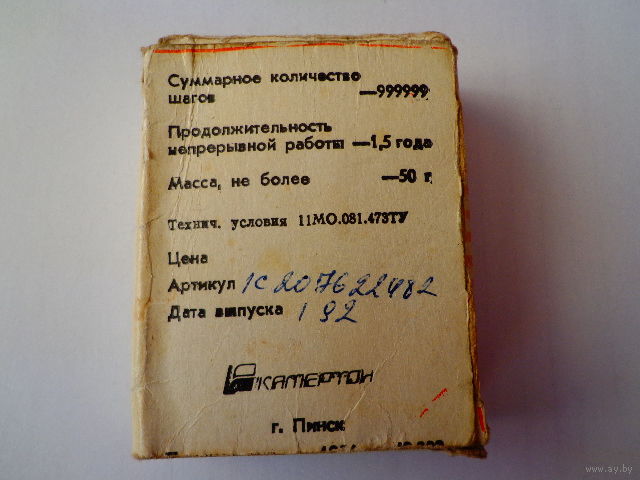 Суммарное количество
шагов —999999
Продолжительность
непрерывной работы —1,5 года
Масса, не более —50 г.
Технич. условия 11МО.081.473ТУ
Цена
Артикул 1С207622482
Дата выпуска 1 92
КАМЕРТОН
г. Пинск
www.ay.by